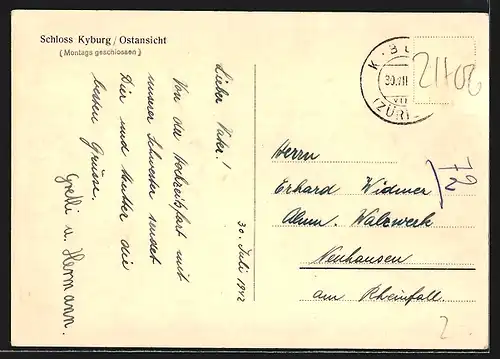 Schloss Kyburg / Ostansicht
(Montags geschlossen)
30. Juli 1942
Lieber Vater!
Von der Hochzeitsfart mit
unserer Schwester sendet
Dir und Mutter die
besten Grüsse.
Gretli u. Hermann.
KYBU
30.VII
VII
(ZÜRI
21408
Herrn
Erhard Widmer
Alum. Walzwerk
Neuhausen
am Rheinfall.
72
2